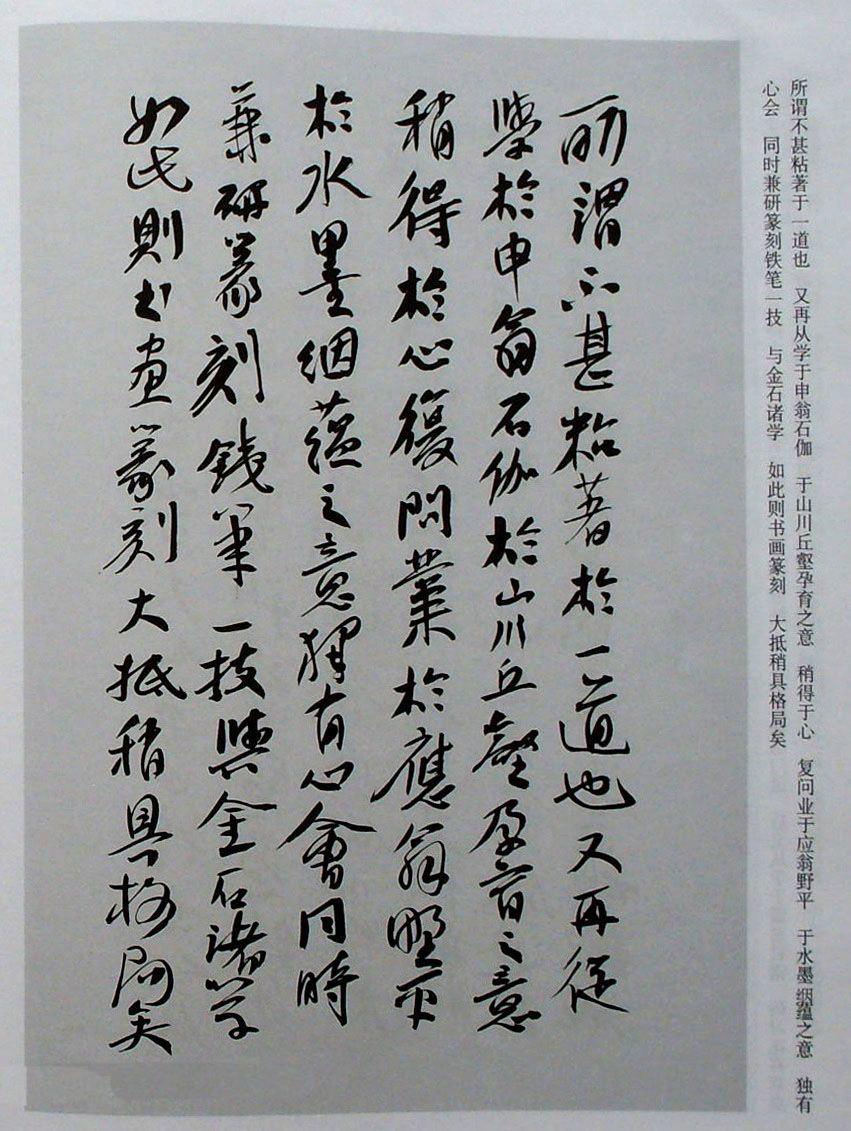 所谓不甚粘著于一道也　又再从学于申翁石伽　于山川丘壑孕育之意　稍得于心　复问业于应翁野平　于水墨絪蕴之意　独有
心会　同时兼研篆刻铁笔一技　与金石诸学　如此则书画篆刻　大抵稍具格局矣
所謂不甚粘著於一道也又再從
學於申翁石伽於山川丘壑孕育之意
稍得於心復問業於應翁野平
於水墨絪蘊之意獨有心會同時
兼研篆刻鐵筆一技與金石諸学
如此則书画篆刻大抵稍具格局矣